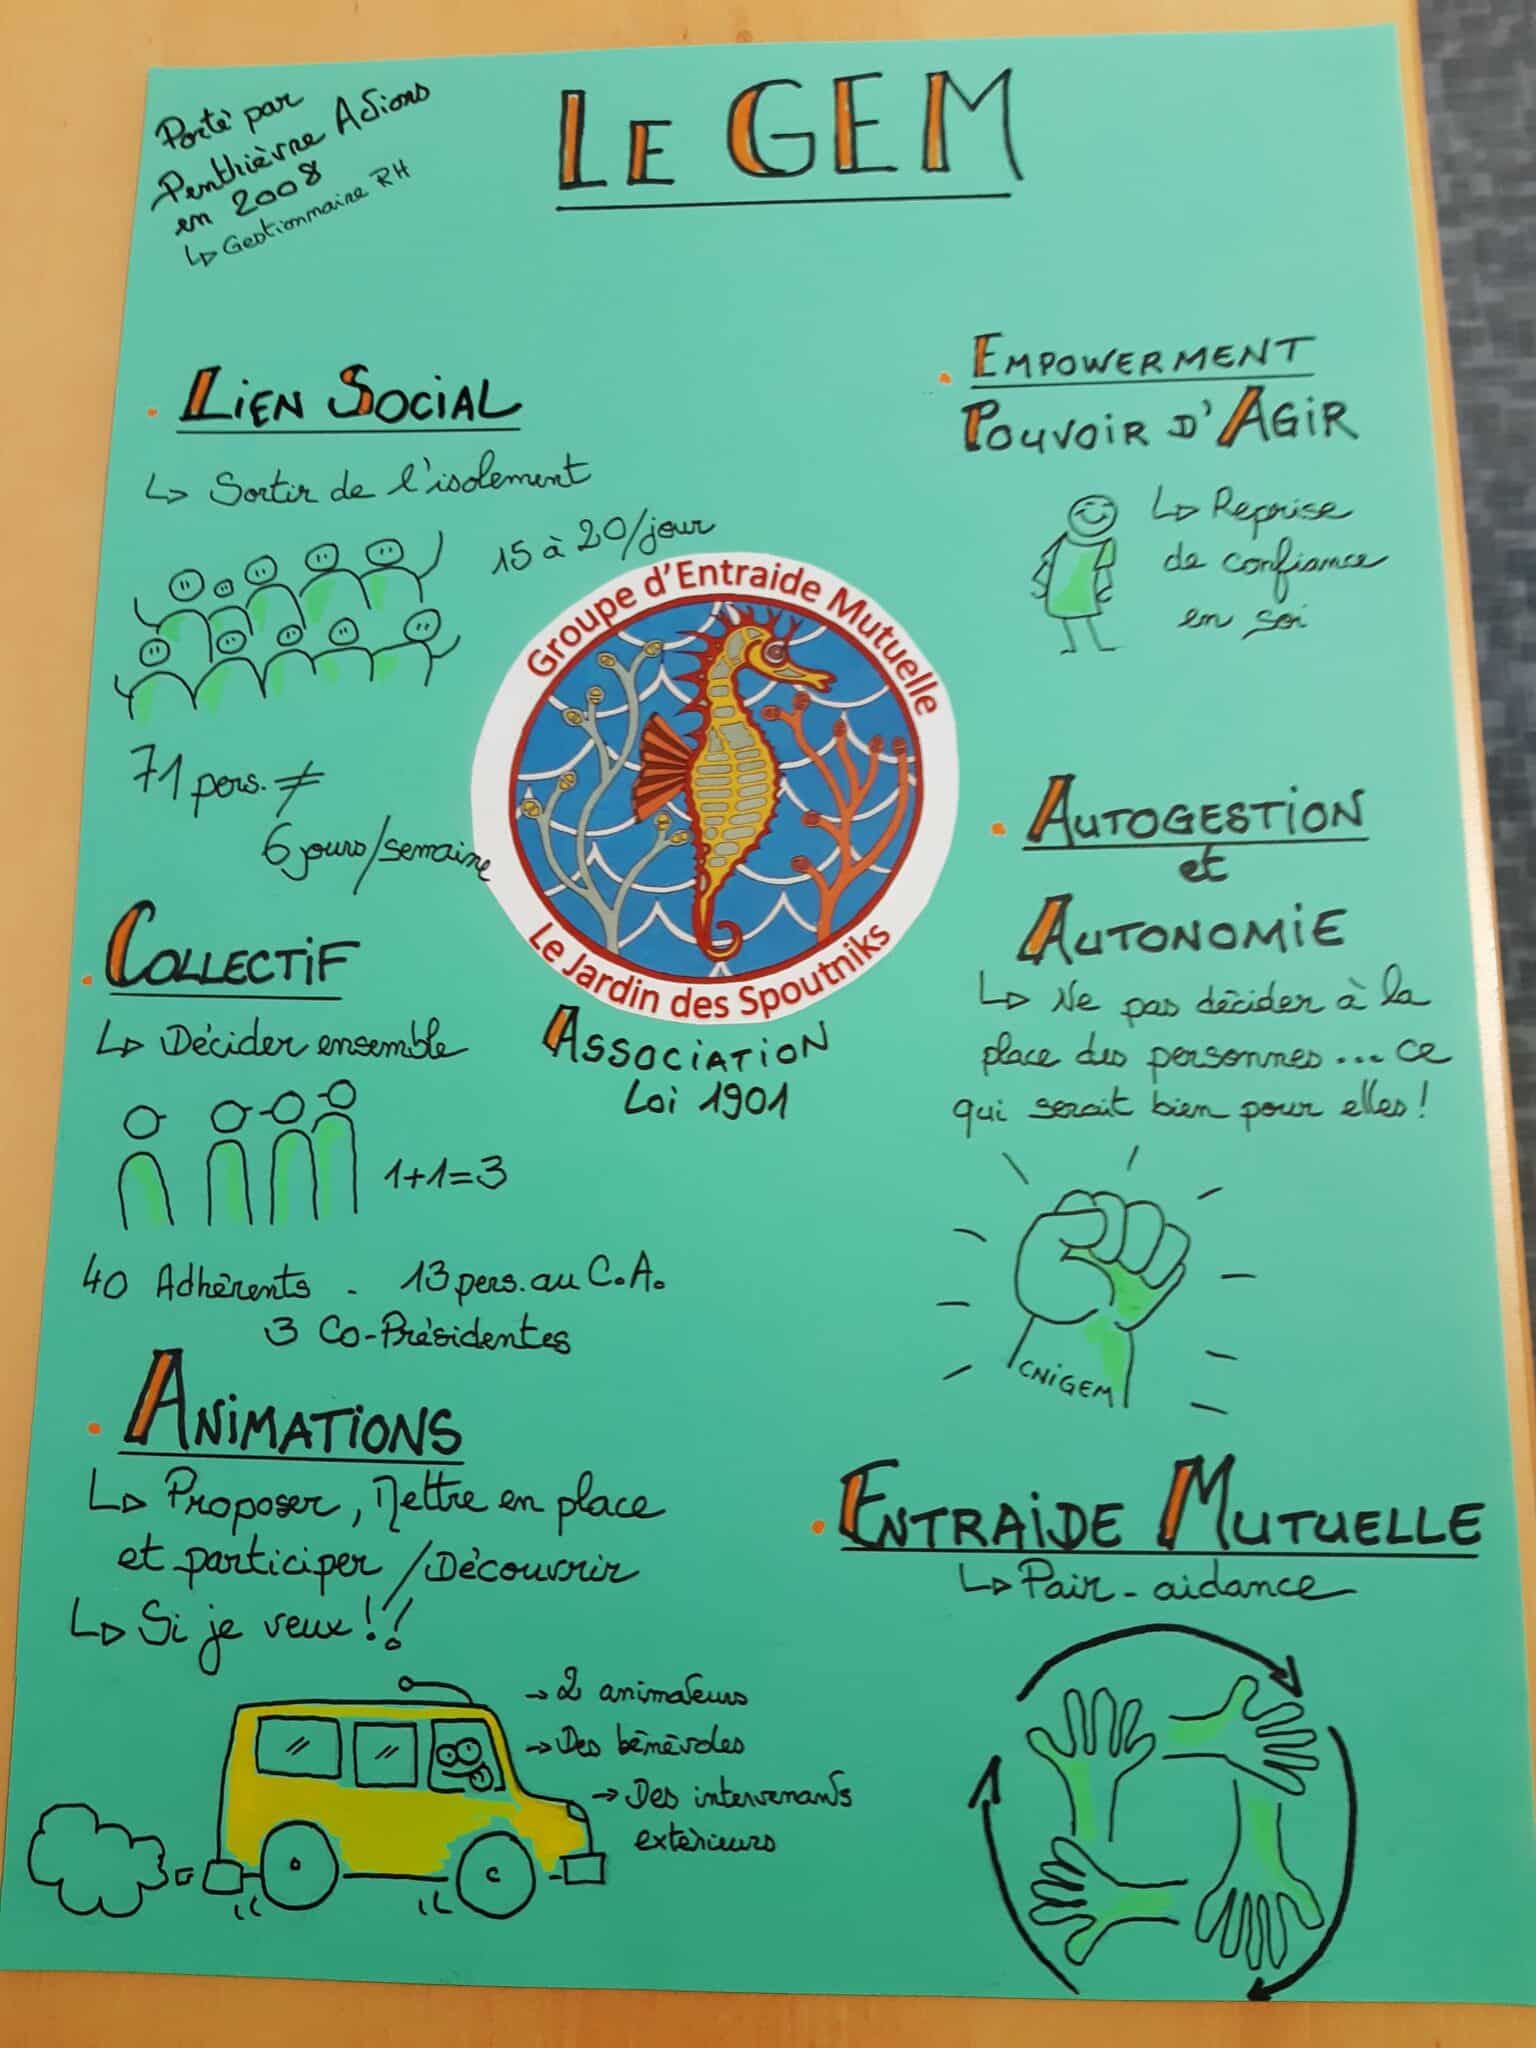 Porté par
Penthièvre Actions
en 2008
Gestionnaire RH
LE GEM
LIEN SOCIAL
Sortir de l'isolement
15 à 20/jour
71 pers. ≠
6 jours/semaine
COLLECTIF
Décider ensemble
1+1=3
40 Adhérents - 13 pers. au C.A.
3 Co-Présidentes
ANIMATIONS
Proposer, Mettre en place
et participer / Découvrir
Si je veux !!
→ 2 animateurs
→ Des bénévoles
→ Des intervenants
extérieurs
Groupe d'Entraide Mutuelle
Le Jardin des Spoutniks
ASSOCIATION
Loi 1901
EMPOWERMENT
POUVOIR D'AGIR
Reprise
de confiance
en soi
AUTOGESTION
et
AUTONOMIE
Ne pas décider à la
place des personnes... ce
qui serait bien pour elles !
CNIGEM
ENTRAIDE MUTUELLE
Pair-aidance